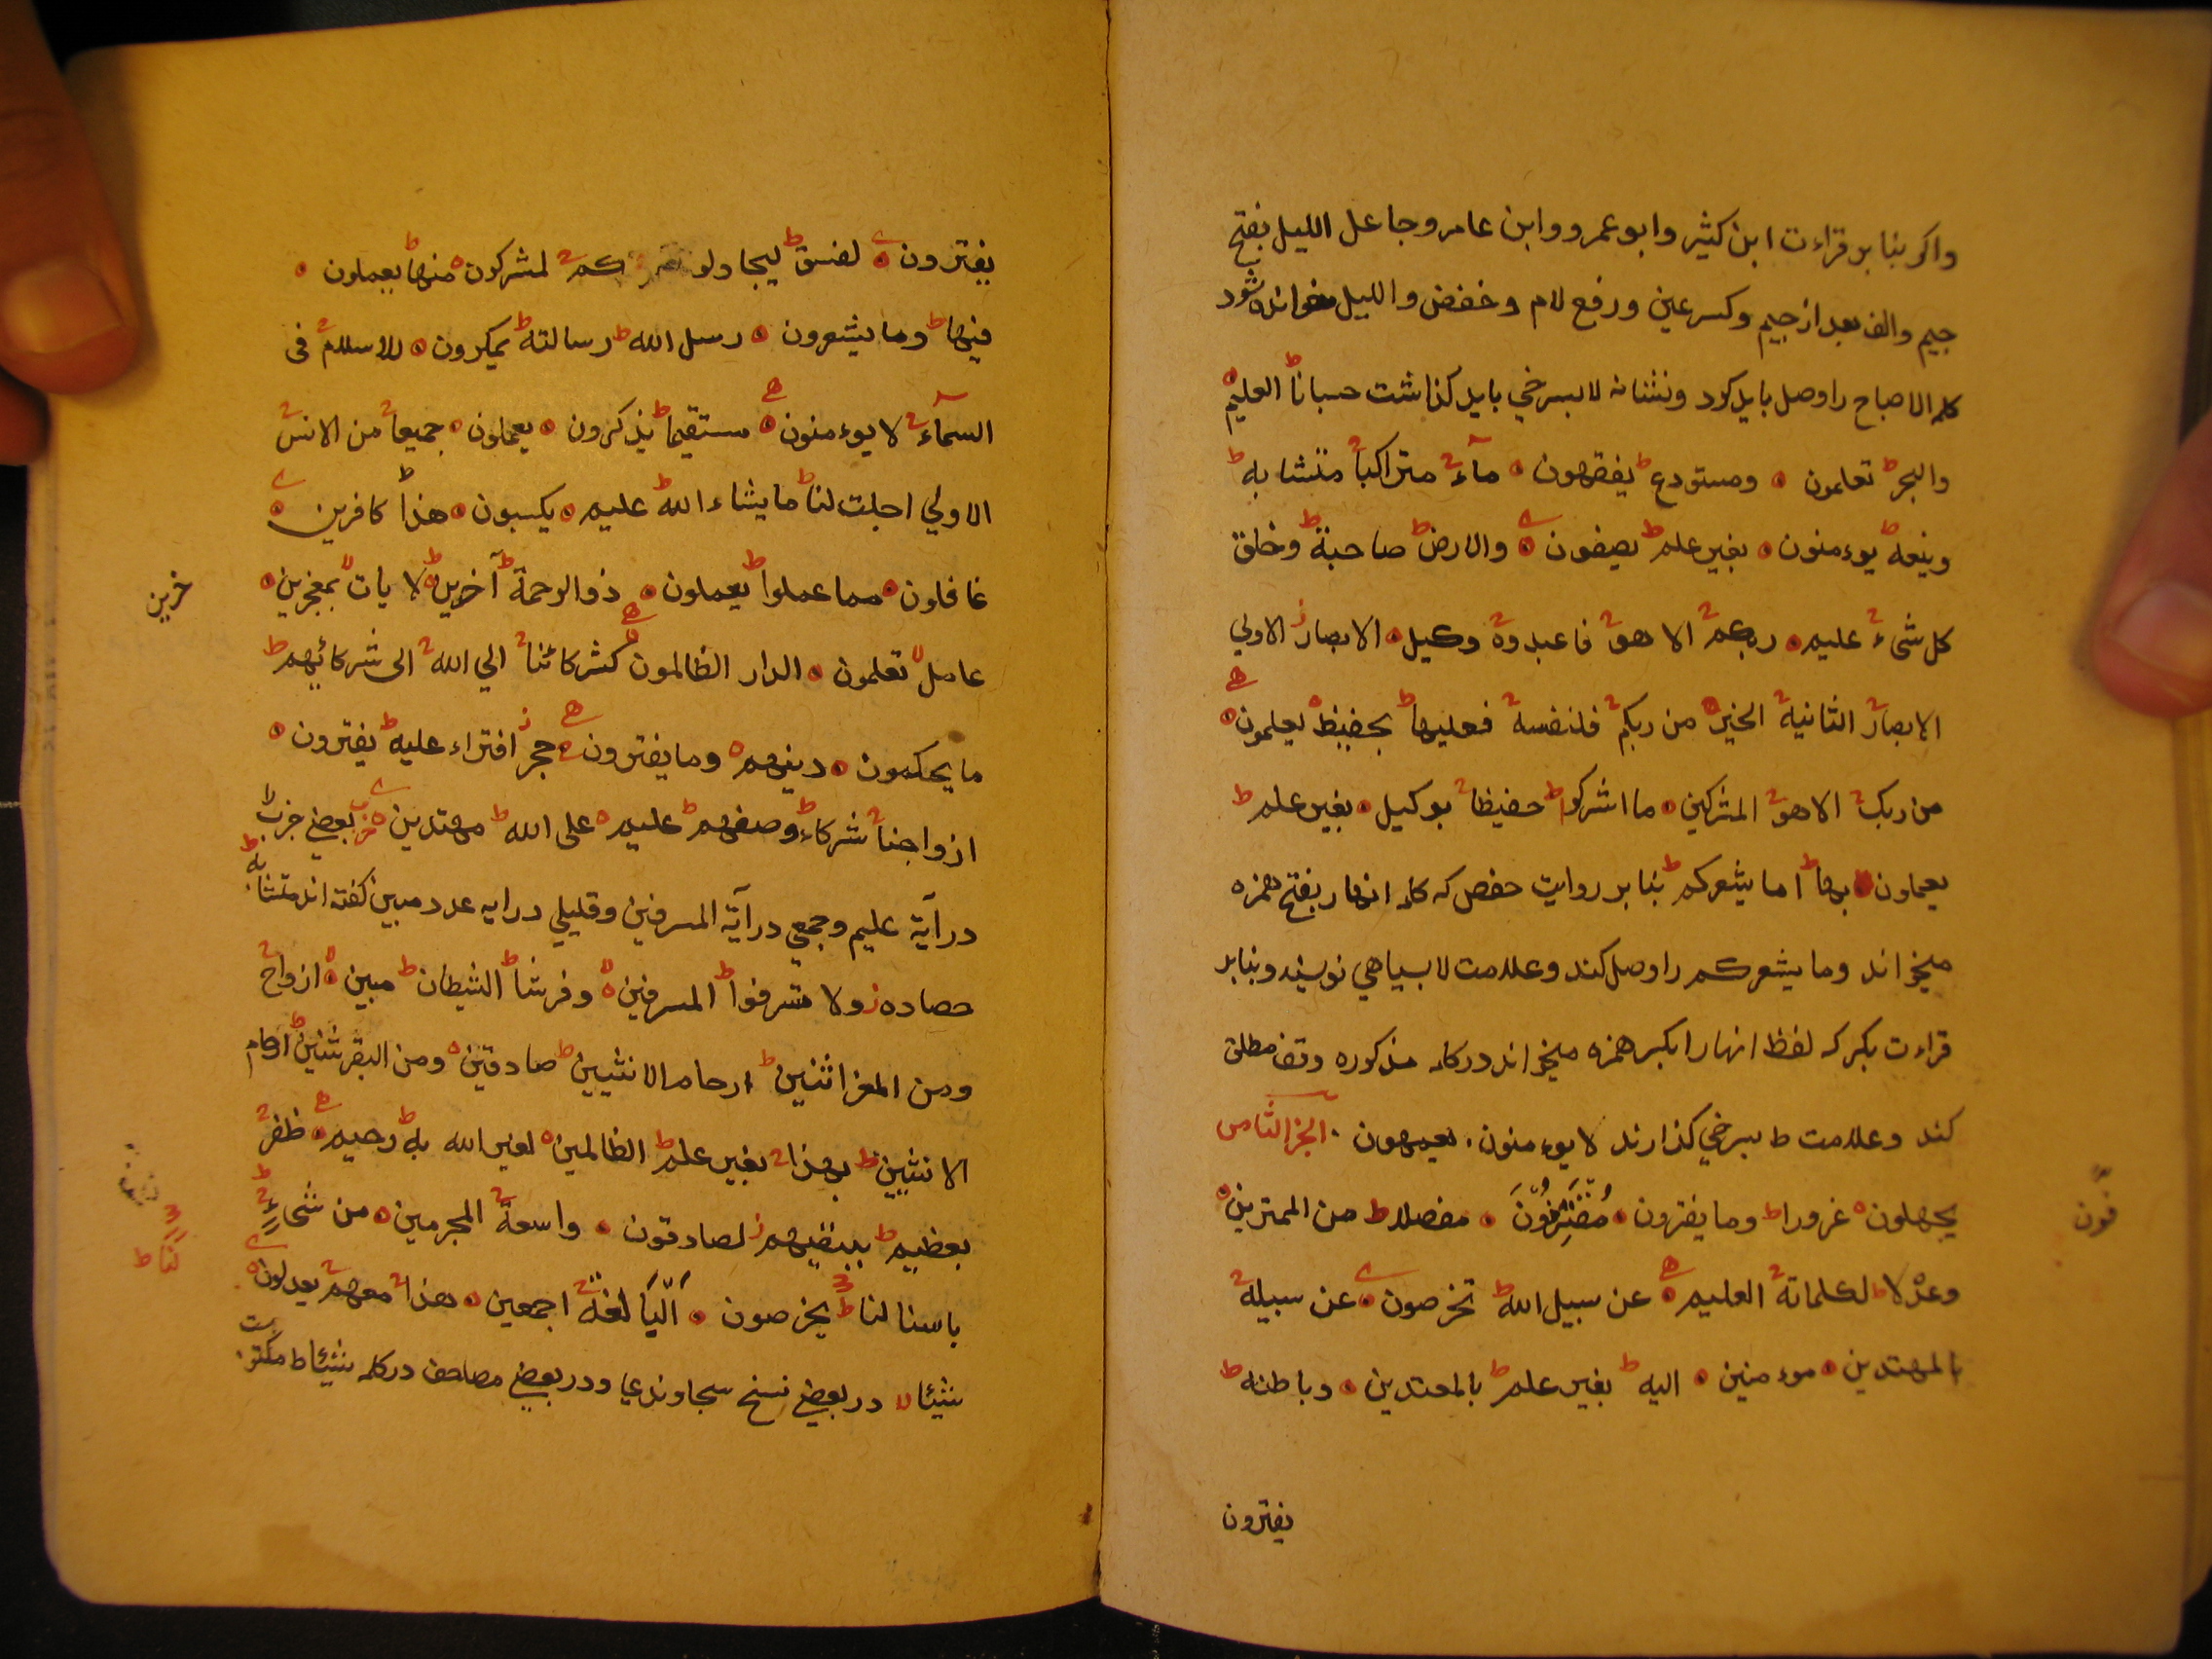 واكر بنا بر قراءت ابن كثير وابو عمرو وابن عامر وجاعل الليل بفتح
جيم والف بعد از جيم وكسر عين ورفع لام وخفض والليل خوانده شود
كلمه الاصباح را وصل بايد كرد ونشانه لا بسرخي بايد كذاشت حسباناً ط العليم ه
والبحر ط تعلمون ه ومستودع ط يفقهون ه ماء ج متراكباً ج متشابه ط
وينعه ط يوءمنون ه بغير علم ط يصفون ه والارض ط صاحبة ط وخلق
كل شىء ج عليم ه ربكم ج الا هو ج فاعبدوه ج وكيل ه الابصار ز الاولي
الابصار ج الثانية الخبير ه من ربكم ج فلنفسه ج فعليها ط بحفيظ ه يعلمون ه
من ربك ج الا هو ج المشركين ه ما اشركوا ط حفيظا ج بوكيل ه بغير علم ط
يعملون ه بها ط اما يشعركم ط بنا بر روايت حفص كه كلمه انها ر بفتح همزه
ميخواند وما يشعركم را وصل كند وعلامت لا بسياهي نويسند وبنابر
قراءت بكر كه لفظ انها را بكسر همزه ميخواند در كلمه مذكوره وقف مطلق
كند وعلامت ط بسرخي كذارند لا يوءمنون ه يعمهون ه الجزء الثامن
يجهلون ه غرورا ط وما يفترون ه مُقْتَرِفُونَ ه مفصلا ط من الممترين ه
فون
وعدلا ط لكلماته ج العليم ه عن سبيل الله ط تخرصون ه عن سبيله ج
بالمهتدين ه موءمنين ه اليه ط بغير علم ط بالمعتدين ه وباطنه ط
يفترون
يقترون ه لفسق ط ليجادلوكم ج لمشركون ه منها ط يعملون ه
فيها ط وما يشعرون ه رسل الله ط رسالته ط يمكرون ه للاسلام ج فى
السماء ج لا يوءمنون ه مستقيما ط يذكرون ه يعملون ه جميعا ج من الانس ج
الاولي اجلت لنا ط ما يشاء الله ط عليم ه يكسبون ه هذا ط كافرين ه
غافلون ه مما عملوا ط يعملون ه ذو الرحمة ط آخرين ط لات لا بمعجزين ه
خرين
عامل لا تعلمون ه الدار الظالمون ه لشركائنا ج الي الله ج الى شركائهم ط
ما يحكمون ه دينهم ه وما يفترون ه حجر ز افتراء عليه ط يفترون ه
ازواجنا ج شركاء ط وصفهم ط عليم ه على الله ط مهتدين ه بعضي خرب لا
در آية عليم وجمعي در آية المسرفين وقليلي در ايه عدد مبين كفته اند متشابه ط
حصاده ز ولا تسرفوا ط المسرفين لا وفرشا ط الشيطان ط مبين لا ازواج ج
ومن المعز اثنين ط ارحام الانثيين ط صادقين ه ومن البقر اثنين ط ارحام
الانثيين ط بهذا ج بغير علم ط الظالمين ه لغير الله به ط رحيم ه ظفر ج
بعظيم ط ببغيهم ز لصادقون ه واسعة ج المجرمين ه من شىء ط
باسنا لنا ط تخرصون ه البالغة ج اجمعين ه هذا ج معهم ج يعدلون ه
لنا ط
شيئا لا در بعض نسخ سجاوندي ودر بعضي مصاحف در كلمه شيئا ط مكتوبست